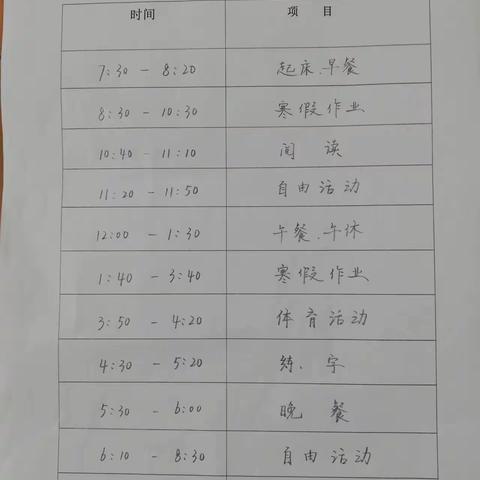 时间 项 目
7:30 - 8:20 起床、早餐
8:30 - 10:30 寒假作业
10:40 - 11:10 阅 读
11:20 - 11:50 自由活动
12:00 - 1:30 午餐、午休
1:40 - 3:40 寒假作业
3:50 - 4:20 体育活动
4:30 - 5:20 练、字
5:30 - 6:00 晚 餐
6:10 - 8:30 自由活动